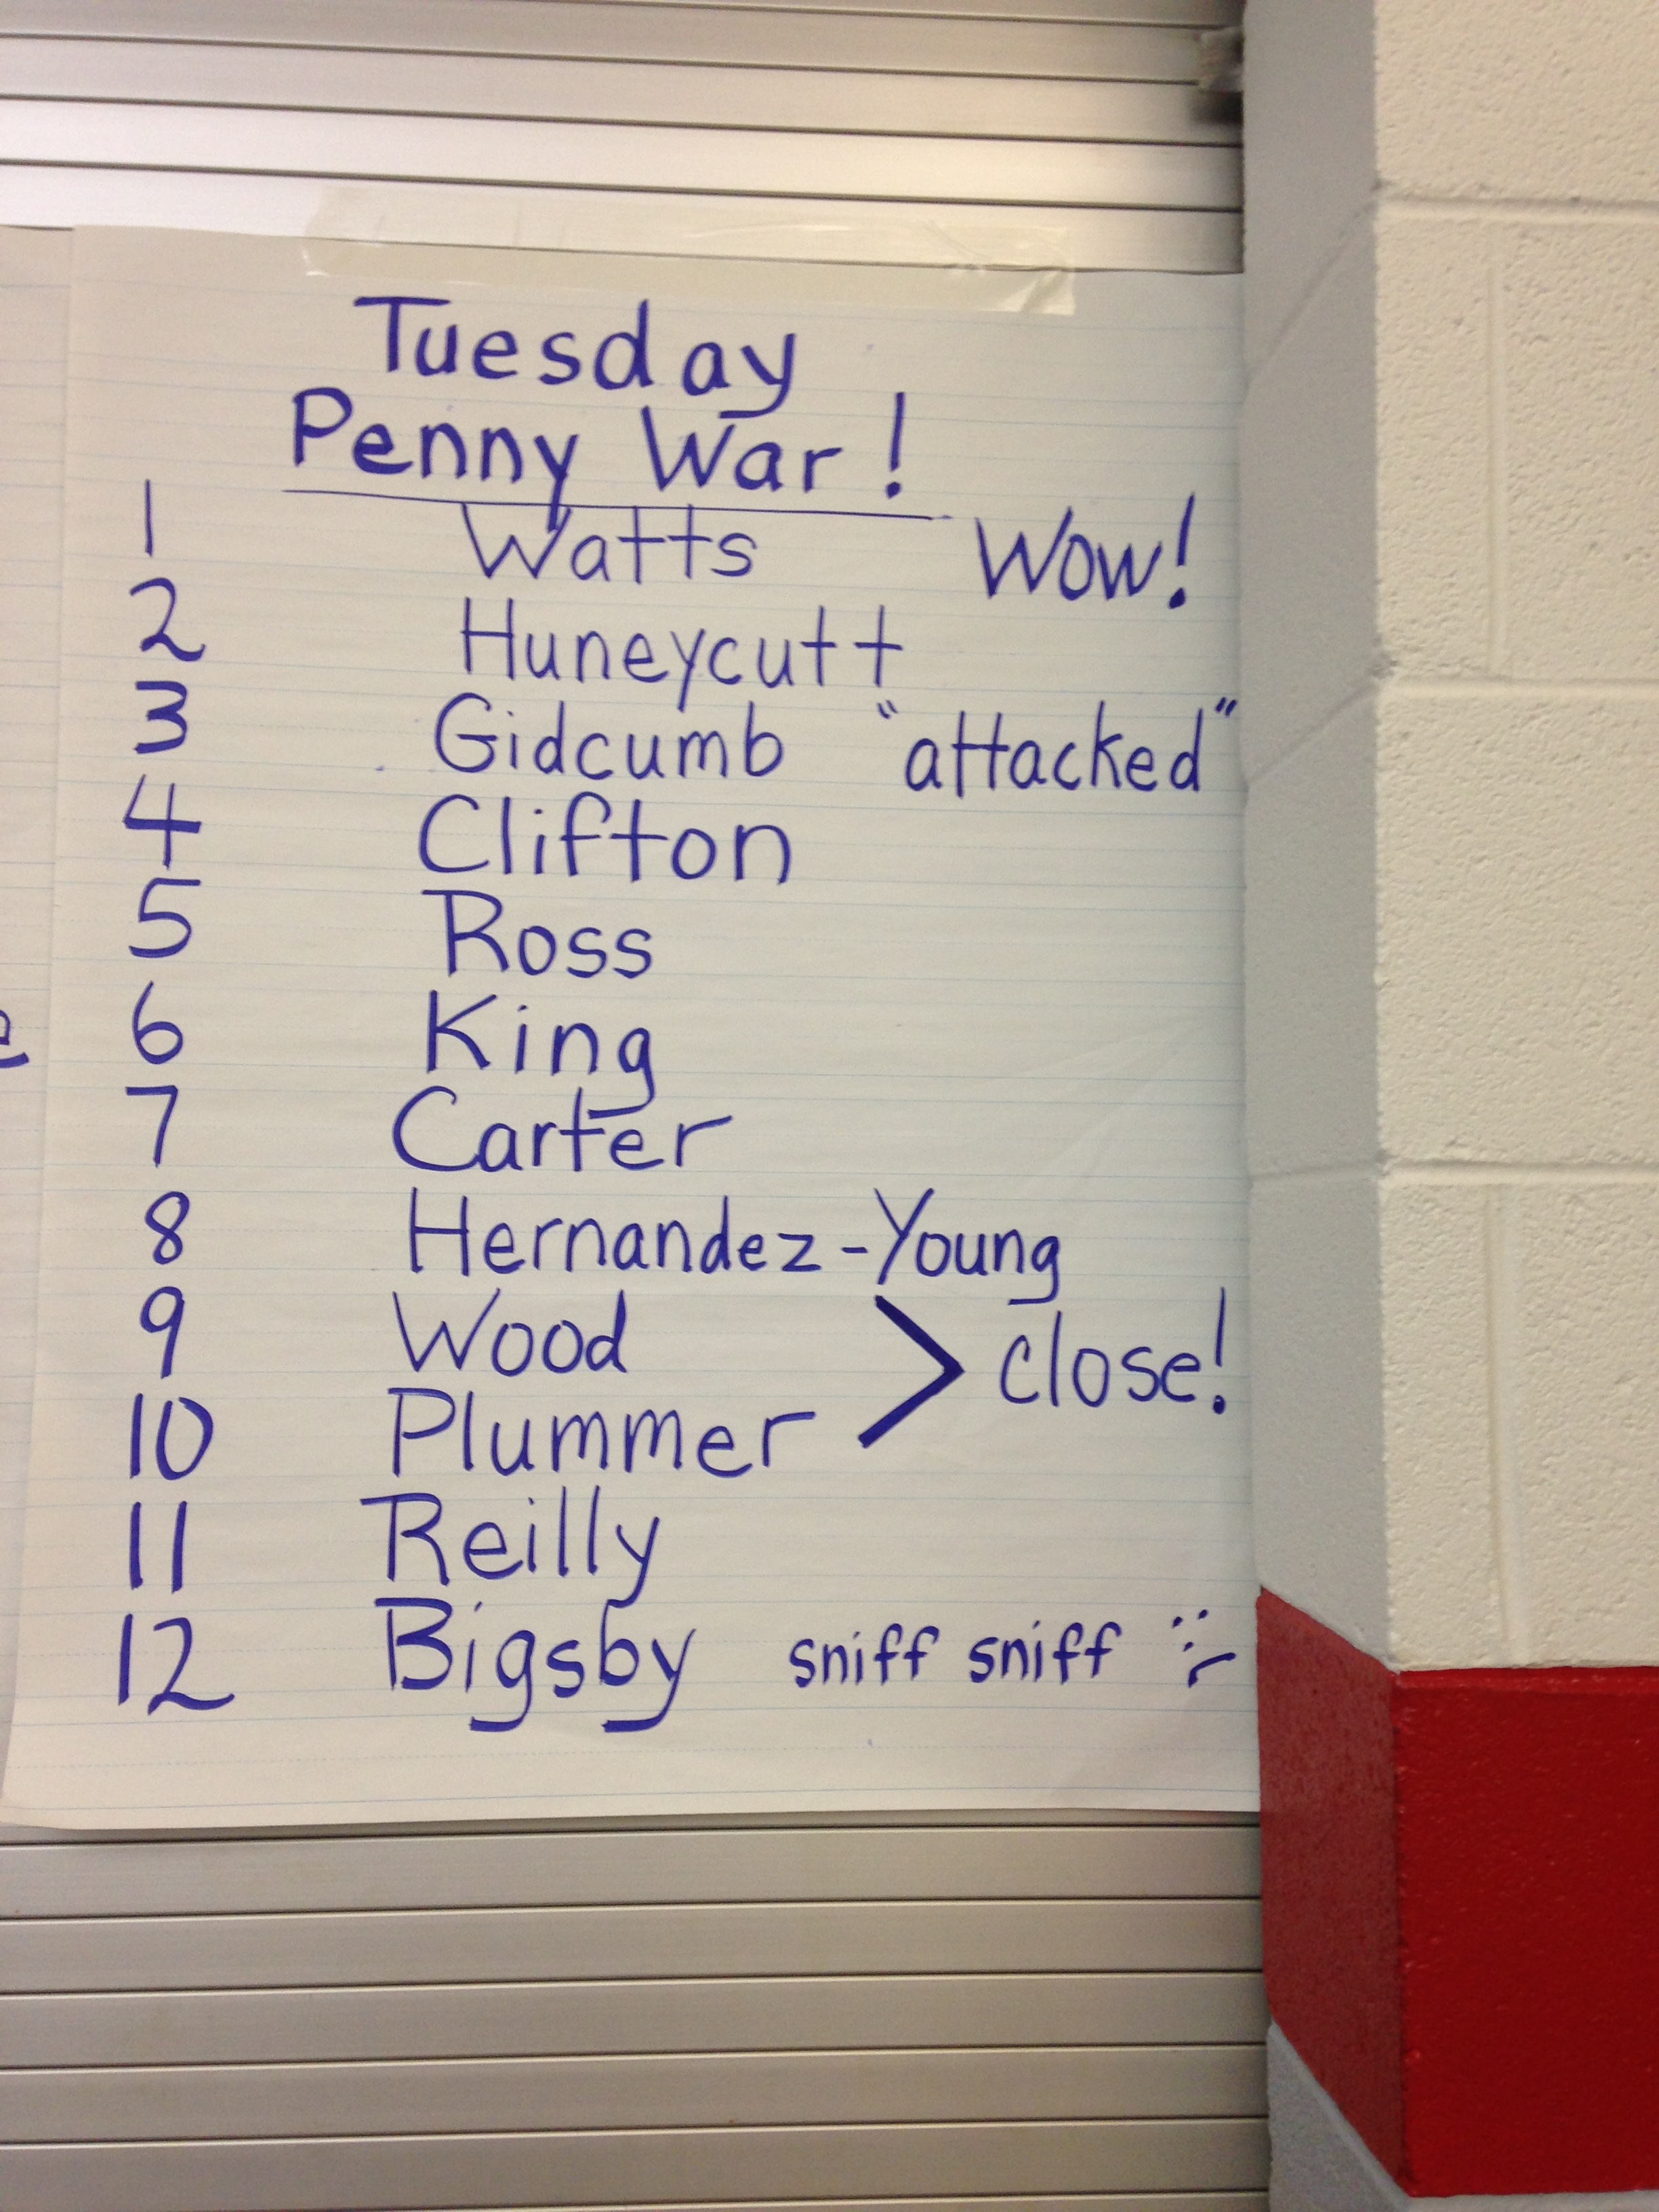 Tuesday
Penny War!
1 Watts Wow!
2 Huneycutt
3 Gidcumb "attacked"
4 Clifton
5 Ross
6 King
7 Carter
8 Hernandez-Young
9 Wood
> close!
10 Plummer
11 Reilly
12 Bigsby sniff sniff :(